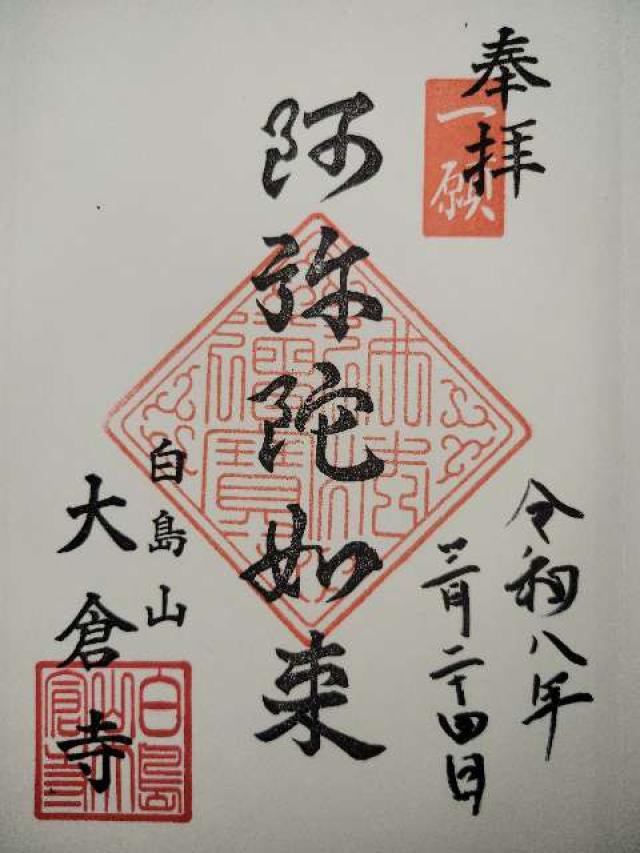 奉拝
一願
令和八年
三月二十四日
阿弥陀如来
佛法僧寶
白島山
大倉寺
白島山大倉寺